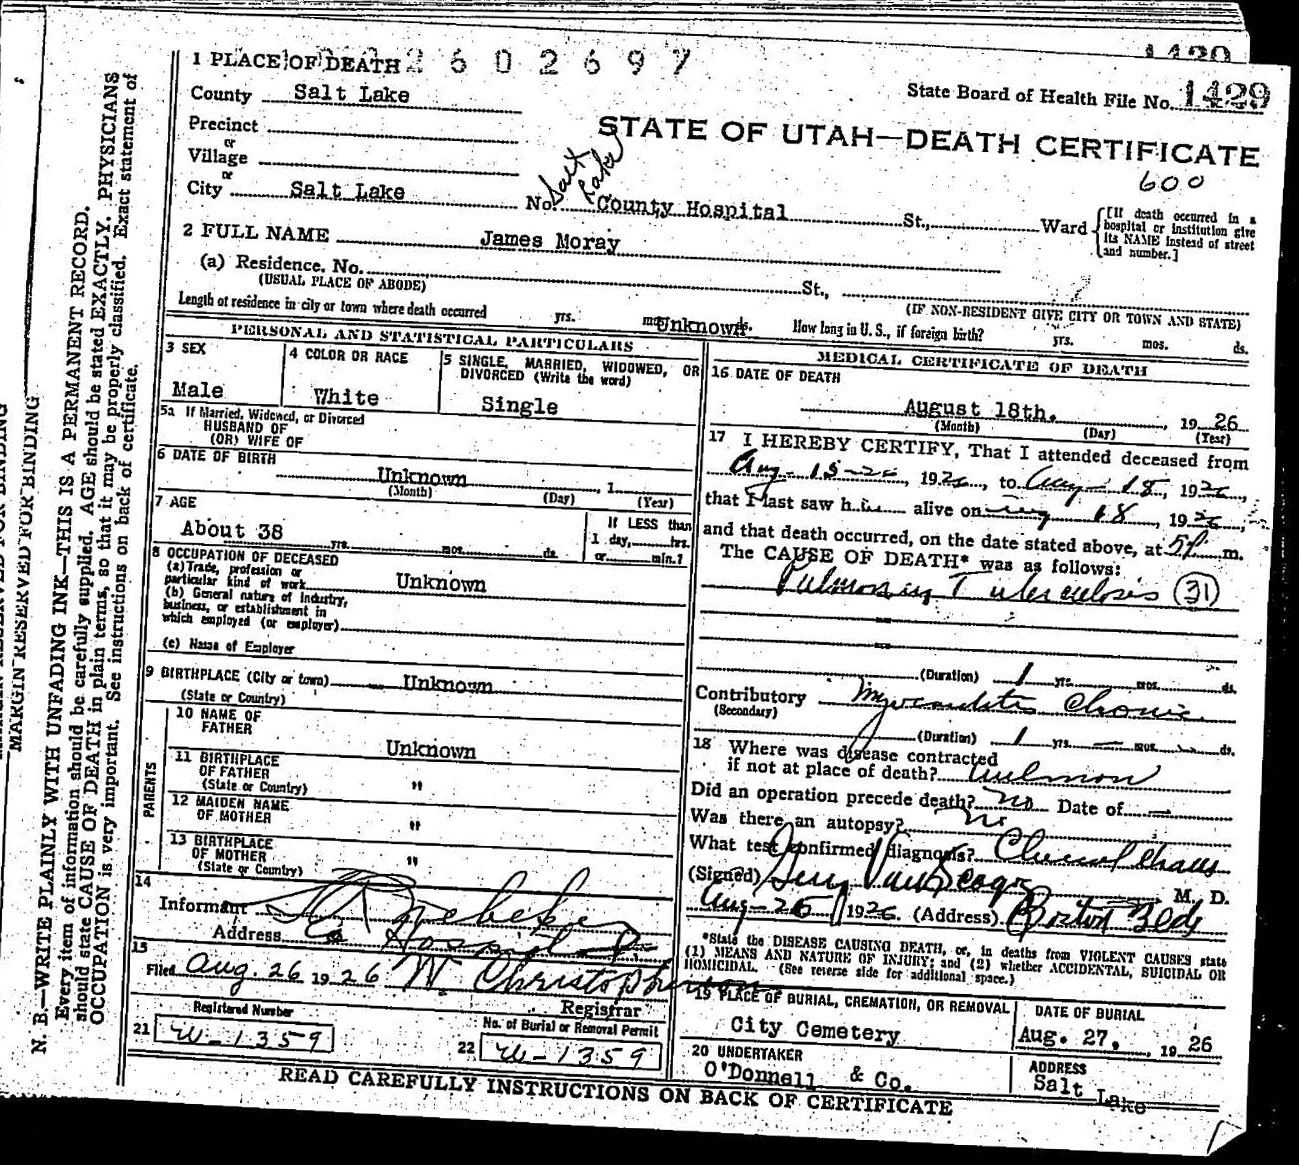 1 PLACE OF DEATH 2602697
1429
State Board of Health File No. 1429
County Salt Lake
STATE OF UTAH—DEATH CERTIFICATE
Precinct
or
Village
or
600
City Salt Lake No. Salt Lake County Hospital St., Ward
[If death occurred in a hospital or institution give its NAME instead of street and number.]
2 FULL NAME James Moray
(a) Residence, No. St.,
(USUAL PLACE OF ABODE) (IF NON-RESIDENT GIVE CITY OR TOWN AND STATE)
Length of residence in city or town where death occurred yrs. mos. Unknown ds. How long in U. S., if foreign birth? yrs. mos. ds.
PERSONAL AND STATISTICAL PARTICULARS
3 SEX
Male
4 COLOR OR RACE
White
5 SINGLE, MARRIED, WIDOWED, OR
DIVORCED (Write the word)
Single
5a If Married, Widowed, or Divorced
HUSBAND OF
(OR) WIFE OF
6 DATE OF BIRTH
Unknown , 1
(Month) (Day) (Year)
7 AGE
About 38 yrs. mos. ds.
If LESS than
1 day, hrs.
or min.?
8 OCCUPATION OF DECEASED
(a) Trade, profession or
particular kind of work Unknown
(b) General nature of Industry,
business, or establishment in
which employed (or employer)
(c) Name of Employer
9 BIRTHPLACE (City or town) Unknown
(State or Country)
PARENTS
10 NAME OF
FATHER
Unknown
11 BIRTHPLACE
OF FATHER
(State or Country) "
12 MAIDEN NAME
OF MOTHER "
13 BIRTHPLACE
OF MOTHER "
(State or Country)
14
Informant
Address Co Hospital
15
Filed Aug. 26 1926 W. Christopherson
Registrar
Registered Number
21 W-1359
No. of Burial or Removal Permit
22 W-1359
MEDICAL CERTIFICATE OF DEATH
16 DATE OF DEATH
August 18th. , 19 26
(Month) (Day) (Year)
17 I HEREBY CERTIFY, That I attended deceased from
Aug-15-26 , 1926, to Aug-18, 1926,
that I last saw him alive on Aug 18, 1926,
and that death occurred, on the date stated above, at 5 P m.
The CAUSE OF DEATH* was as follows:
Pulmonary Tuberculosis (31)
(Duration) 1 yrs. mos. ds.
Contributory Myocarditis Chronic
(Secondary)
(Duration) 1 yrs. — mos. ds.
18 Where was disease contracted
if not at place of death? unknown
Did an operation precede death? no Date of —
Was there an autopsy? no
What test confirmed diagnosis?
(Signed) M. D.
Aug-26 1926. (Address) Boston Bldg
*State the DISEASE CAUSING DEATH, or, in deaths from VIOLENT CAUSES state
(1) MEANS AND NATURE OF INJURY; and (2) whether ACCIDENTAL, SUICIDAL OR
HOMICIDAL. (See reverse side for additional space.)
19 PLACE OF BURIAL, CREMATION, OR REMOVAL
City Cemetery
DATE OF BURIAL
Aug. 27, , 19 26
20 UNDERTAKER
O'Donnell & Co.
ADDRESS
Salt Lake
READ CAREFULLY INSTRUCTIONS ON BACK OF CERTIFICATE
MARGIN RESERVED FOR BINDING
N. B.—WRITE PLAINLY WITH UNFADING INK—THIS IS A PERMANENT RECORD.
Every item of information should be carefully supplied. AGE should be stated EXACTLY. PHYSICIANS
should state CAUSE OF DEATH in plain terms, so that it may be properly classified. Exact statement of
OCCUPATION is very important. See instructions on back of certificate.